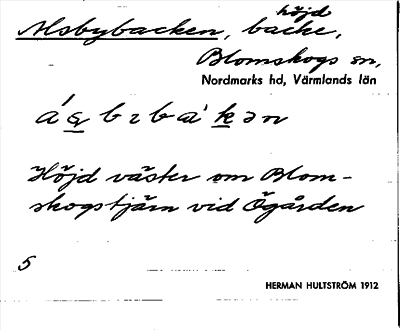 höjd
Alsbybacken, backe,
Blomskogs sn,
Nordmarks hd, Värmlands län
Höjd väster om Blom-
skogstjärn vid Ögården
5
HERMAN HULTSTRÖM 1912